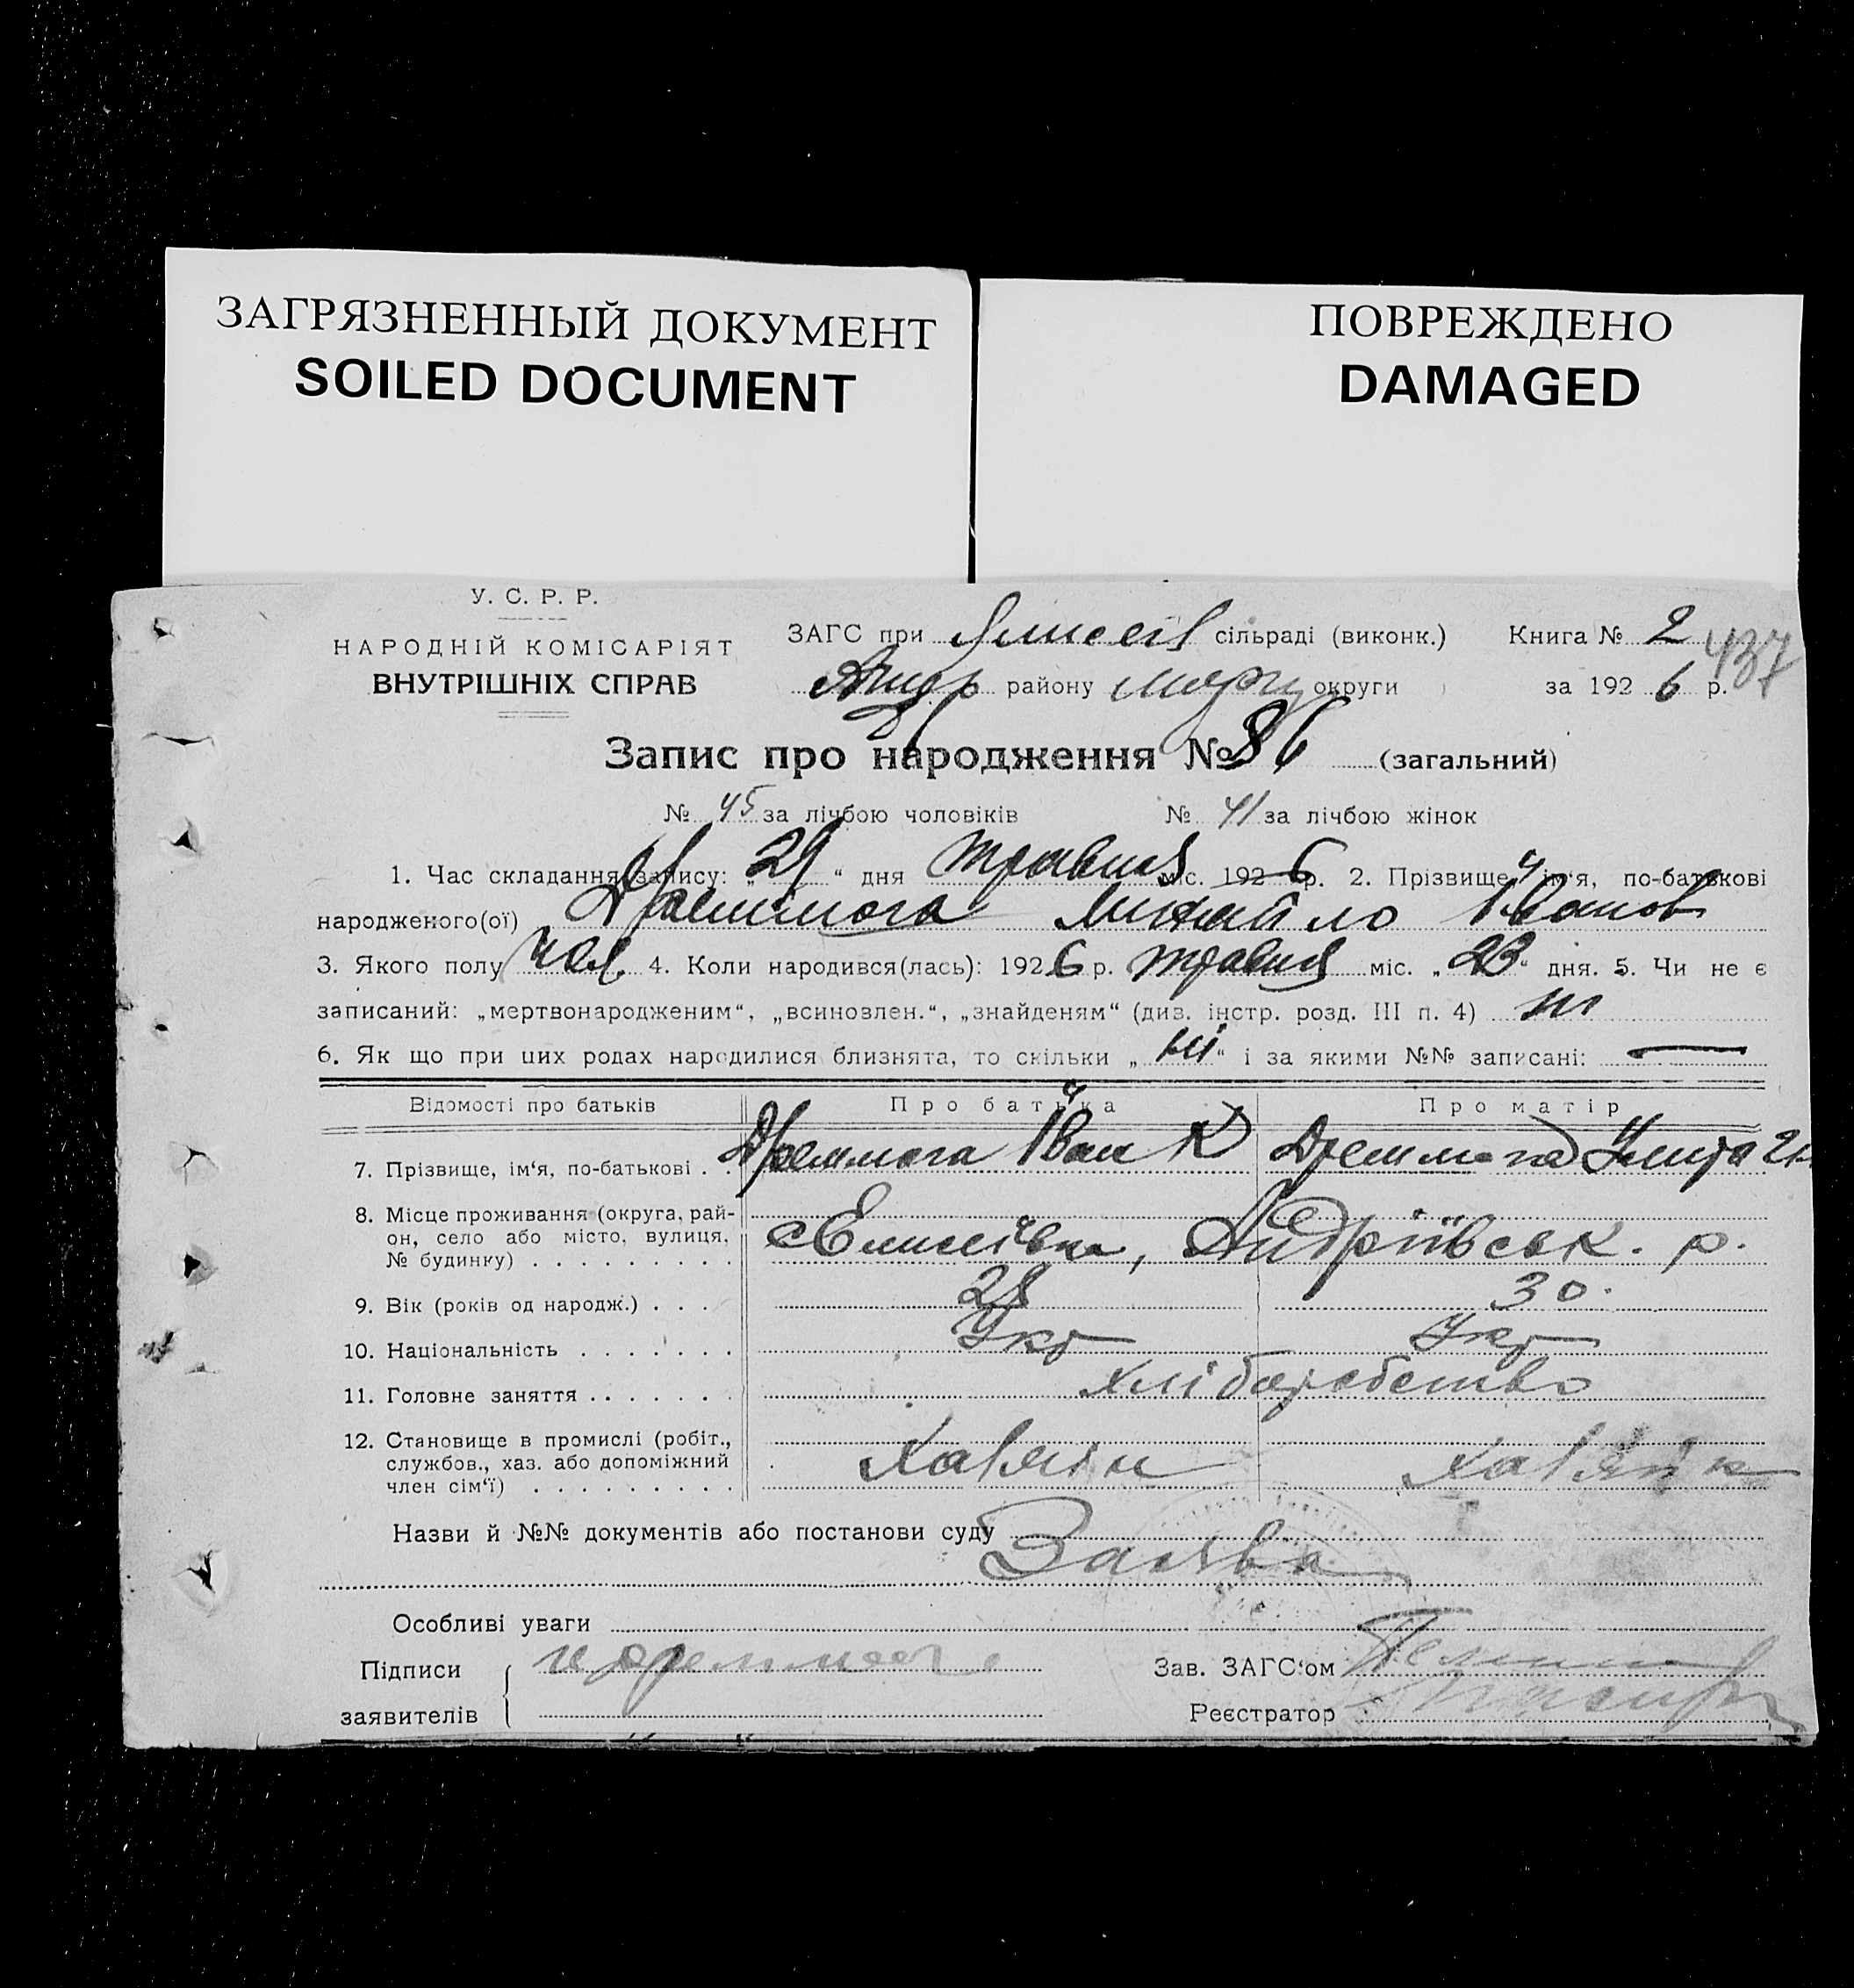 ЗАГРЯЗНЕННЫЙ ДОКУМЕНТ
SOILED DOCUMENT
ПОВРЕЖДЕНО
DAMAGED
У. С. Р. Р.
НАРОДНІЙ КОМІСАРІЯТ
ВНУТРІШНІХ СПРАВ
ЗАГС при сільраді (виконк.) Книга № 2
437
Андр района округи за 192 6 р.
Запис про народження № 86 (загальний)
№ 45 за лічбою чоловіків № 41 за лічбою жінок
1. Час складання запису: „ 29 “ дня травня міс. 192 6 р. 2. Прізвище, ім'я, по-батькові
народженого(ої) Дремлюга Михайло Іванов
3. Якого полу чол. 4. Коли народився(лась): 192 6 р. травня міс. „ 23 “ дня. 5. Чи не є
записаний: „мертвонародженим“, „всиновлен.“, „знайденям“ (див. інстр. розд. III п. 4) ні
6. Як що при цих родах народилися близнята, то скільки „ ні “ і за якими №№ записані: —
Відомості про батьків Про батька Про матір
7. Прізвище, ім'я, по-батькові . . Дремлюга Іван К Дремлюга
8. Місце проживання (округа, рай-
он, село або місто, вулиця, с Елисеівка, Андріівськ. р.
№ будинку) . . . . . . . . .
9. Вік (років од народж.) . . . 28 30.
10. Національність . . . . . . . Укр Укр
11. Головне заняття . . . . . . хліборобство
12. Становище в промислі (робіт.,
службов., хаз. або допоміжний Хазяін
член сім'ї) . . . . . . . . .
Назви й №№ документів або постанови суду Заява
Особливі уваги
Підписи Зав. ЗАГС'ом
заявителів Реєстратор